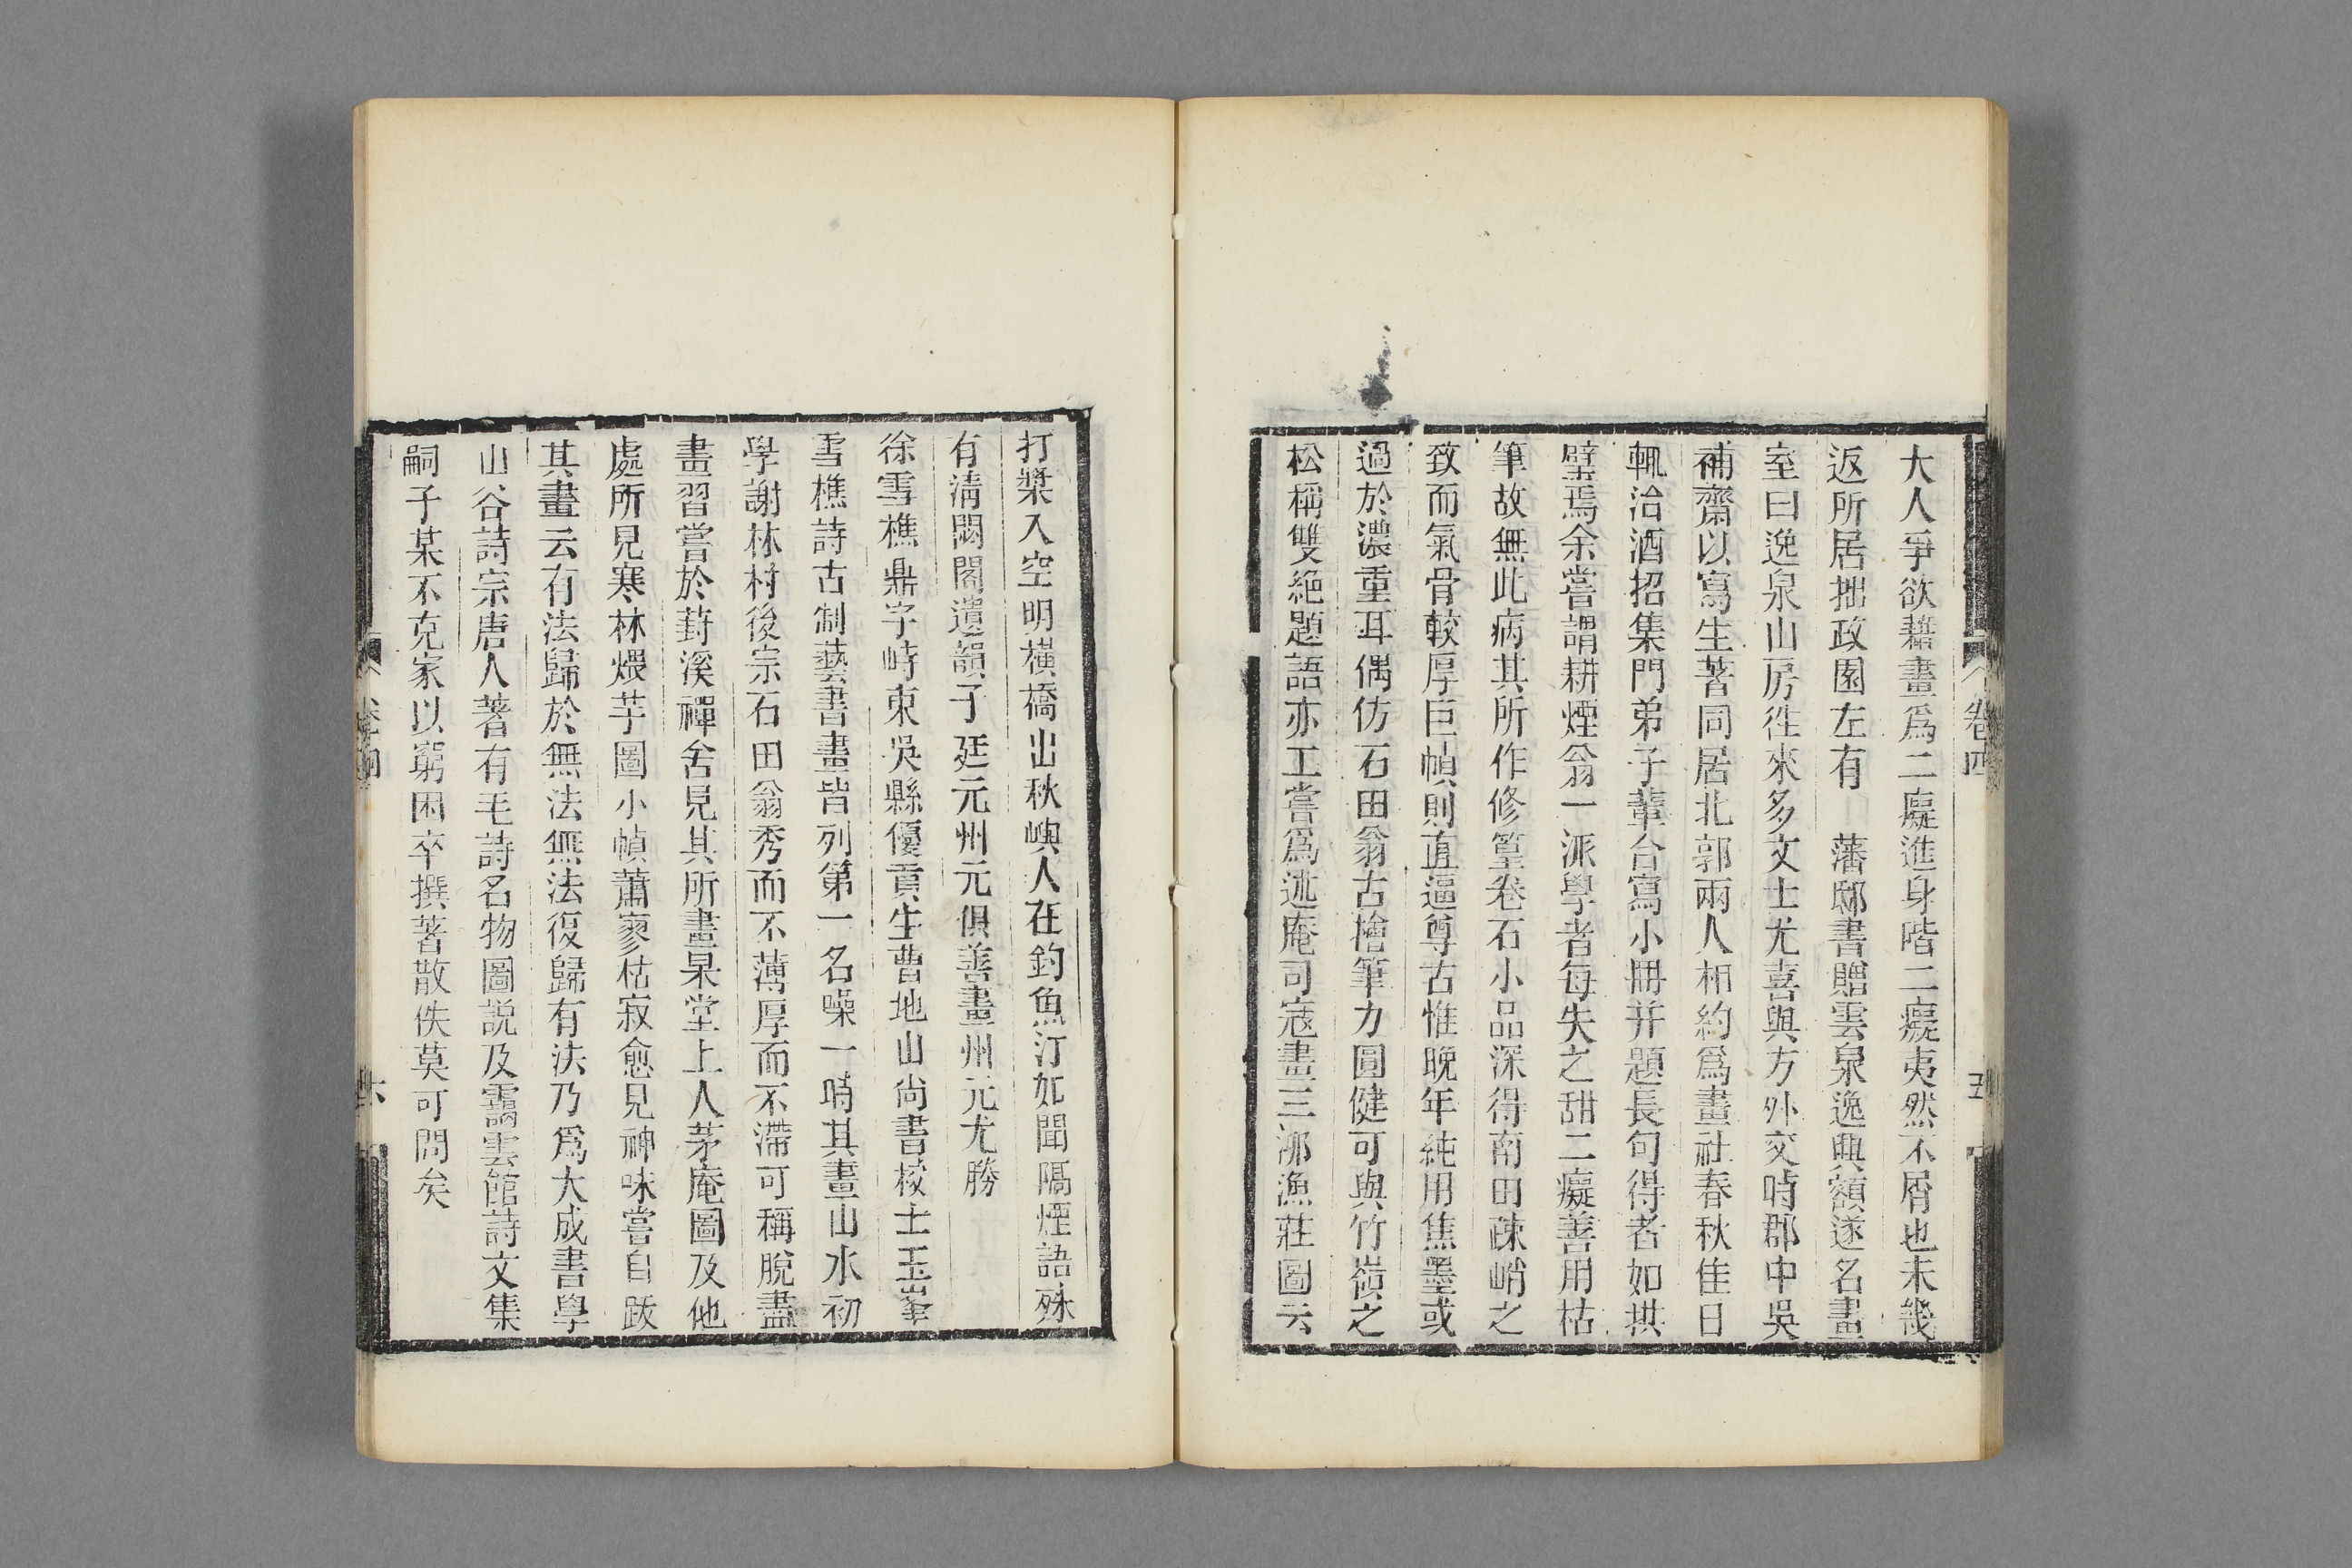 卷四
五
大人爭欲藉畫爲二癡進身階二癡夷然不屑也未幾
返所居拙政園左有　藩邸書贈雲泉逸興額遂名畫
室曰逸泉山房徃來多文士尤喜與方外交時郡中吳
補齋以寫生著同居北郭兩人相約爲畫社春秋佳日
輒治酒招集門弟子輩合寫小冊并題長句得者如拱
璧焉余嘗謂耕煙翁一派學者每失之甜二癡善用枯
筆故無此病其所作修篁卷石小品深得南田疎峭之
致而氣骨較厚巨幀則直逼尊古惟晚年純用焦墨或
過於濃重耳偶仿石田翁古檜筆力圓健可與竹嶺之
松稱雙絶題語亦工嘗爲述庵司寇畫三泖漁莊圖云
打槳入空明橫橋出秋嶼人在釣魚汀如聞隔煙語殊
有清閟閣遺韻子廷元州元俱善畫州元尤勝
徐雪樵鼎字峙東吳縣優貢生曹地山尚書校士玉峯
雪樵詩古制藝書畫皆列第一名噪一時其畫山水初
學謝林村後宗石田翁秀而不薄厚而不滯可稱脫盡
畫習嘗於葑溪禪舍見其所畫杲堂上人茅庵圖及他
處所見寒林煨芋圖小幀蕭寥枯寂愈見神味嘗自跋
其畫云有法歸於無法無法復歸有法乃爲大成書學
山谷詩宗唐人著有毛詩名物圖説及靄雲館詩文集
嗣子某不克家以窮困卒撰著散佚莫可問矣
卷四
六